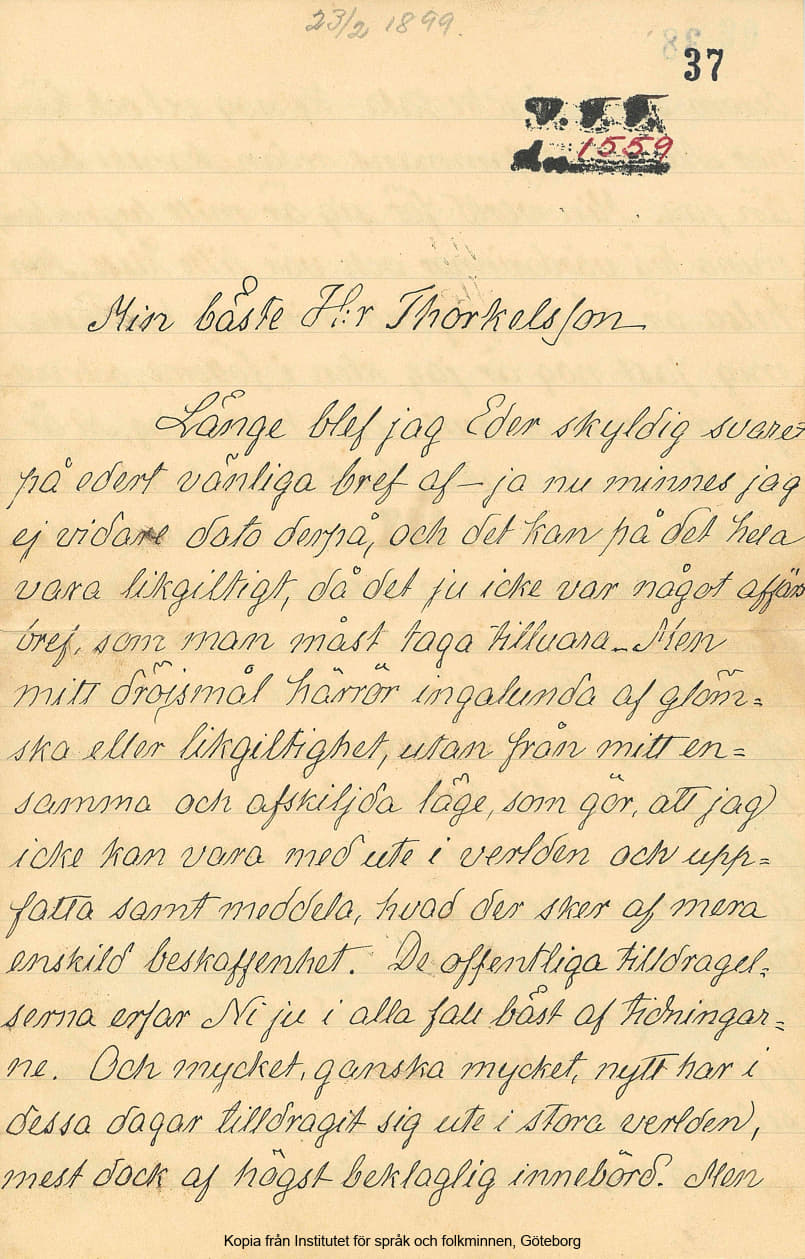 23/2 1899.
37
V. F. F.
1559
Min bäste H:r Thorkelsson
Länge blef jag Eder skyldig svaret
på edert vänliga bref af – ja nu minnes jag
ej vidare dato derpå, och det kan på det hela
vara likgiltigt, då det ju icke var något affärs
bref, som man måst taga tillvara – Men
mitt dröjsmål härrör ingalunda af glöm=
ska eller likgiltighet, utan från mitt en=
samma och afskiljda läge, som gör, att jag
icke kan vara med ute i verlden och upp=
fatta samt meddela, hvad der sker af mera
enskild beskaffenhet. De offentliga tilldragel=
serna erfar Ni ju i alla fall bäst af tidningar=
ne. Och mycket, ganska mycket, nytt har i
dessa dagar tilldragit sig ute i stora verlden,
mest dock af högst beklaglig innebörd. Men
Kopia från Institutet för språk och folkminnen, Göteborg